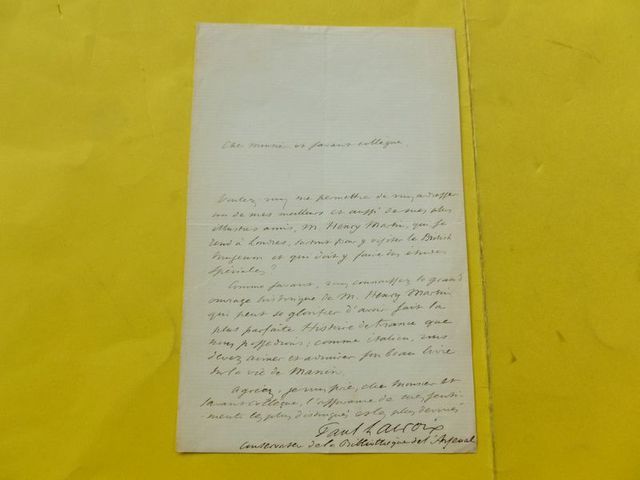 Cher monsieur et savant collègue,
Voulez vous me permettre de vous adresser
un de mes meilleurs et aussi de mes plus
illustres amis, M. Henry Martin, qui se
rend à Londres, surtout pour y visiter le British
Museum et qui doit y faire des études
spéciales?
Comme savant, vous connaissez le grand
ouvrage historique de M. Henry Martin
qui peut se glorifier d'avoir fait la
plus parfaite Histoire de France que
nous possédions; comme italien, vous
devez aimer et admirer son beau livre
sur la vie de Manin.
Agréez, je vous prie, cher monsieur et
savant collègue, l'assurance de mes senti-
ments les plus distingués et les plus dévoués
Paul Lacroix
conservateur de la Bibliothèque de l'Arsenal